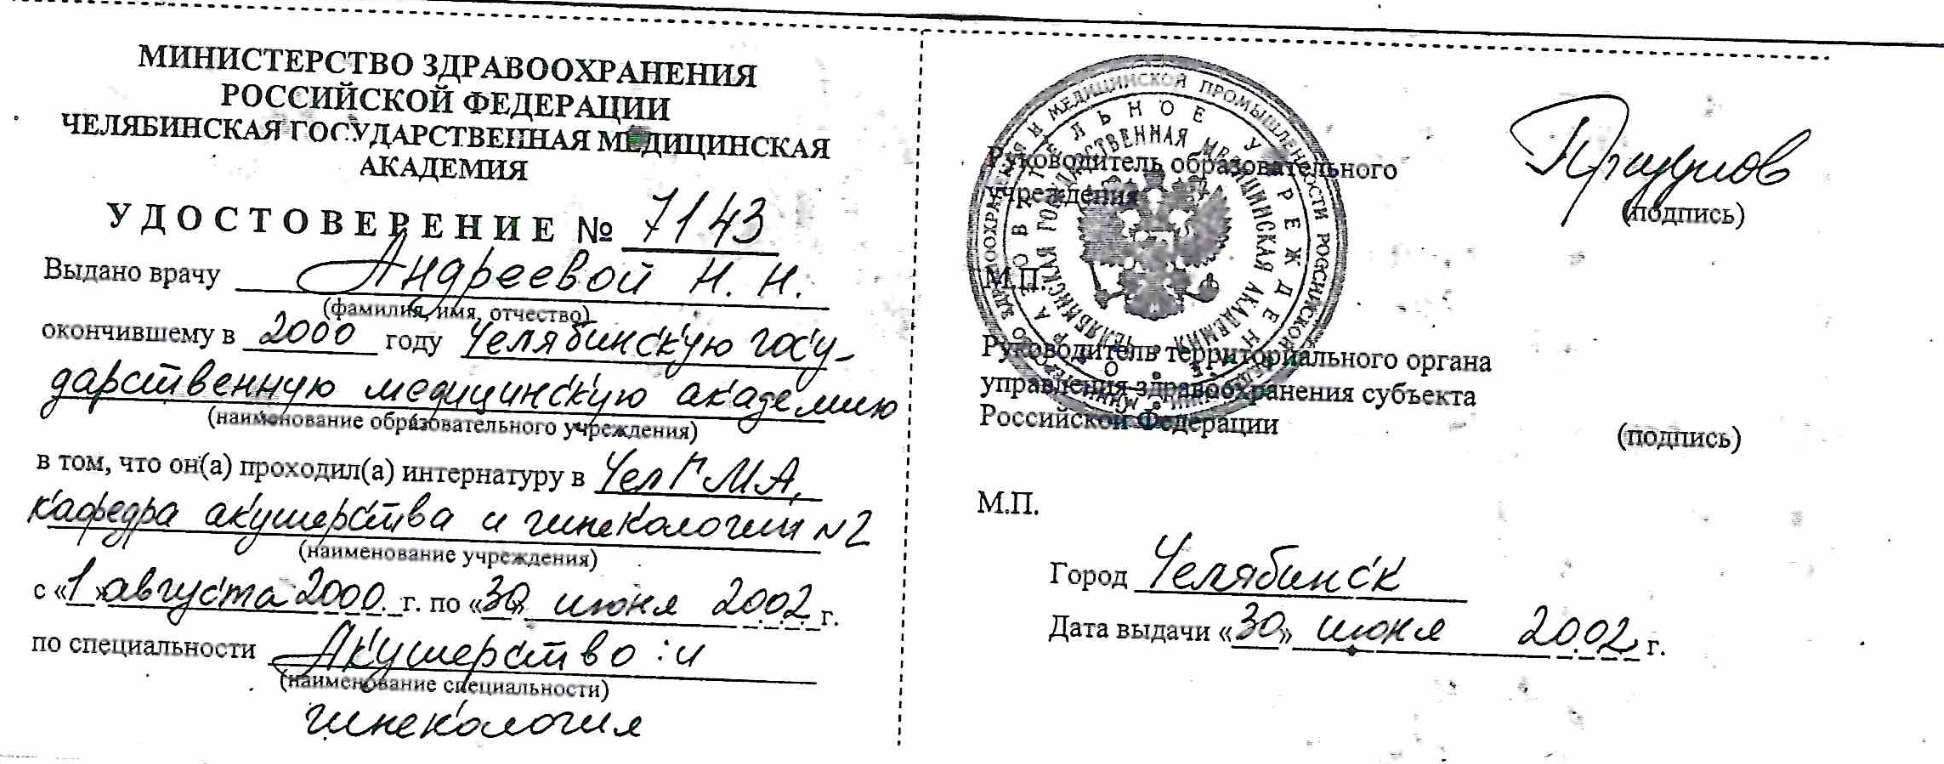 МИНИСТЕРСТВО ЗДРАВООХРАНЕНИЯ
РОССИЙСКОЙ ФЕДЕРАЦИИ
ЧЕЛЯБИНСКАЯ ГОСУДАРСТВЕННАЯ МЕДИЦИНСКАЯ
АКАДЕМИЯ
УДОСТОВЕРЕНИЕ № 7143
Выдано врачу Андреевой Н. Н.
(фамилия, имя, отчество)
окончившему в 2000 году Челябинскую госу-
дарственную медицинскую академию
(наименование образовательного учреждения)
в том, что он(а) проходил(а) интернатуру в ЧелГМА,
кафедра акушерства и гинекологии №2
(наименование учреждения)
с «1» августа 2000 г. по «30» июня 2002 г.
по специальности Акушерство и
(наименование специальности)
гинекология
Руководитель образовательного
учреждения
(подпись)
М.П.
Руководитель территориального органа
управления здравоохранения субъекта
Российской Федерации
(подпись)
М.П.
Город Челябинск
Дата выдачи «30» июня 2002 г.
ОБРАЗОВАТЕЛЬНОЕ УЧРЕЖДЕНИЕ
ЧЕЛЯБИНСКАЯ ГОСУДАРСТВЕННАЯ МЕДИЦИНСКАЯ АКАДЕМИЯ